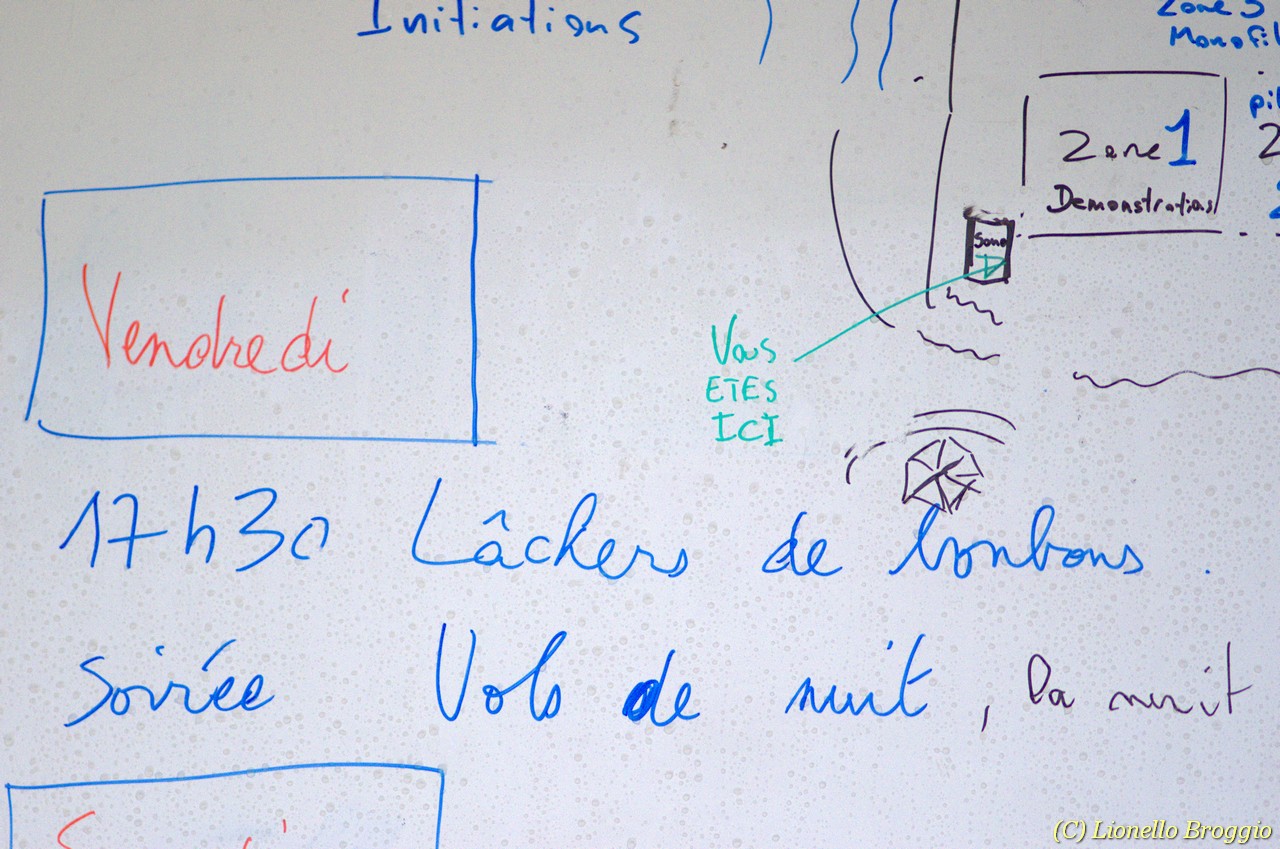 Initiations
Zone 3
Monofil
pil
Zone 1
2
Demonstrations
Sono
Vous
ETES
ICI
Vendredi
17h30 Lâchers de bonbons.
Soirée Vols de nuit, la nuit
(C) Lionello Broggio